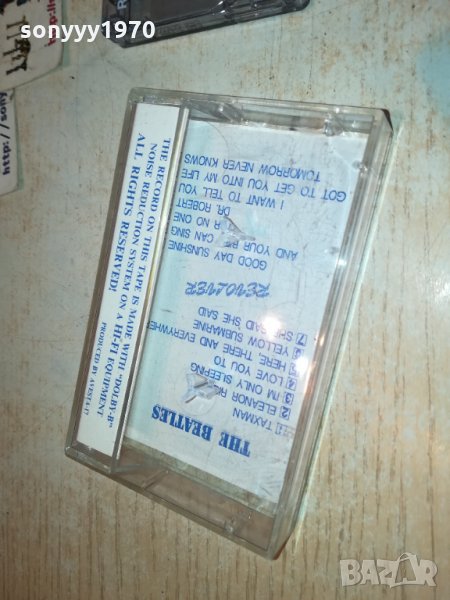 sonyyy1970
THE BEATLES
[1] TAXMAN
[2] ELEANOR
[3] I'M ONLY SLEEPING
[4] LOVE YOU TO
[5] HERE, THERE AND EVERYWHE
[6] YELLOW SUBMARINE
[7] SHE SAID SHE SAID
REVOLVER
GOOD DAY SUNSHINE
AND YOUR CAN SING
R NO ONE
DR. ROBERT
I WANT TO TELL YOU
GOT TO GET YOU INTO MY LIFE
TOMORROW NEVER KNOWS
THE RECORD ON THIS TAPE IS MADE WITH "DOLBY-B"
NOISE REDUCTION SYSTEM ON A HI-FI EQUIPMENT
ALL RIGHTS RESERVED!
PRODUCED BY
http://sony
BAZAR